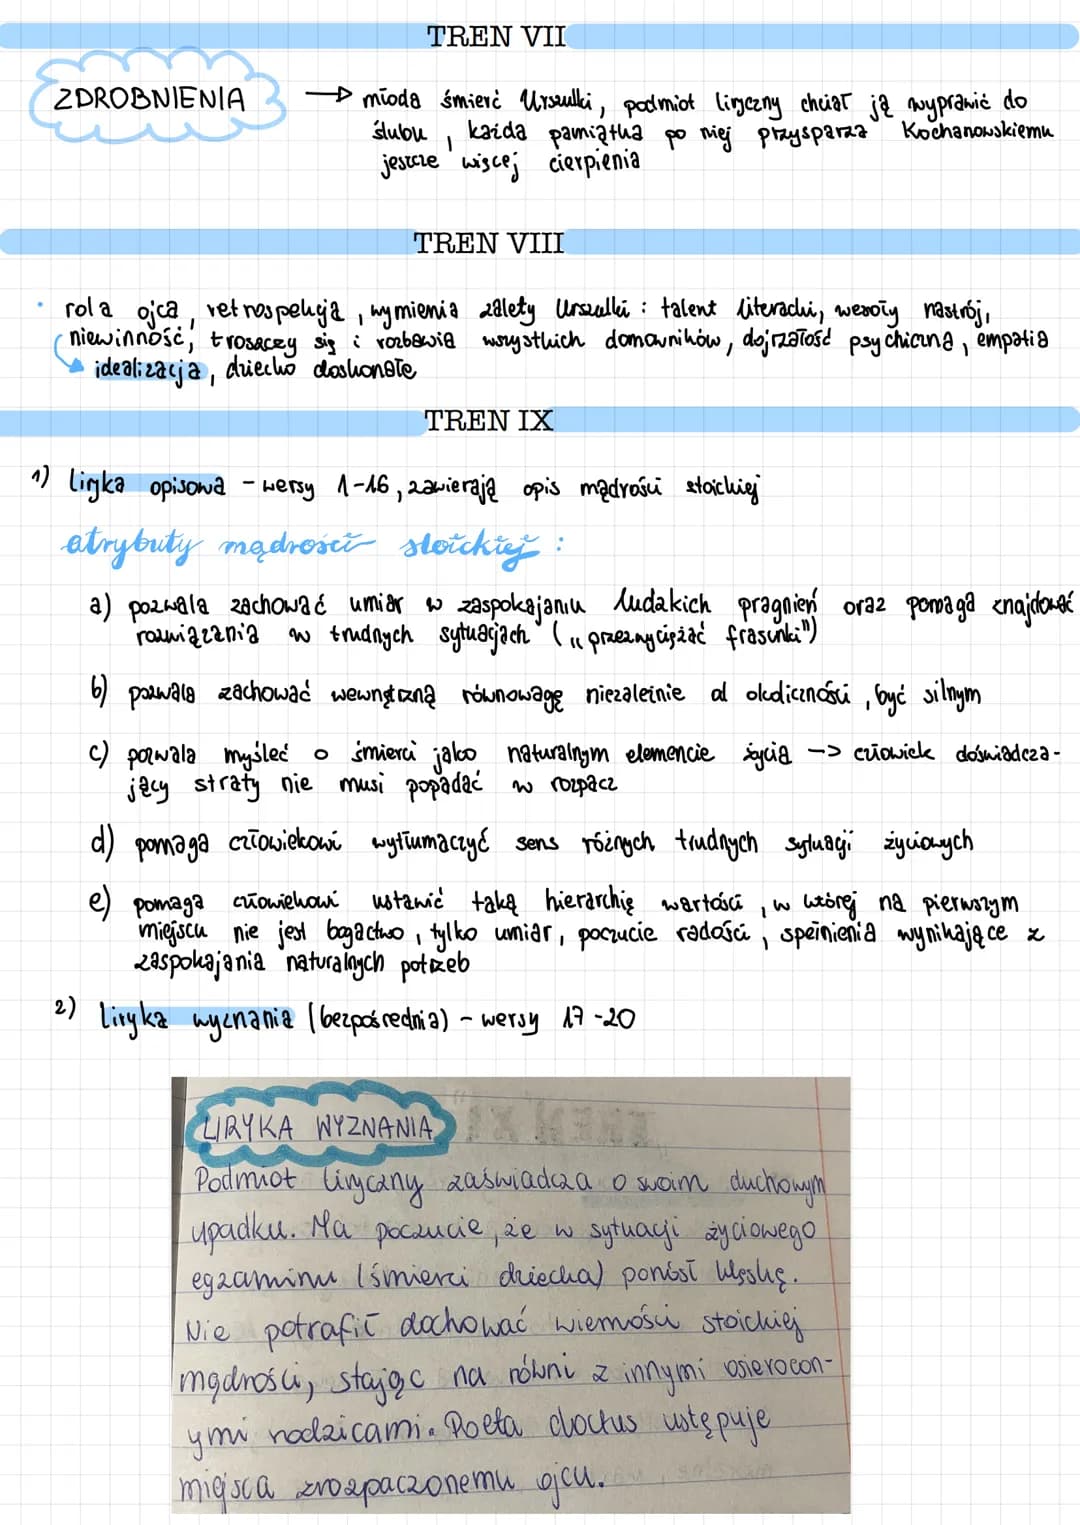 TREN VII
ZDROBNIENIA
młoda śmierć Urszulki, podmiot liryczny chciał ją wyprawić do
ślubu, każda pamiątka po niej przysparza Kochanowskiemu
jeszcze więcej cierpienia
TREN VIII
• rola ojca, retrospekcja, wymienia zalety Urszulki : talent literacki, wesoły nastrój,
niewinność, troszczy się i rozbawia wszystkich domowników, dojrzałość psychiczna, empatia
idealizacja, dziecko doskonałe
TREN IX
1) liryka opisowa - wersy 1-16, zawierają opis mądrości stoickiej
atrybuty mądrości stoickiej :
a) pozwala zachować umiar w zaspokajaniu ludzkich pragnień oraz pomaga znajdować
rozwiązania w trudnych sytuacjach („przezwyciężać frasunki")
b) pozwala zachować wewnętrzną równowagę niezależnie od okoliczności, być silnym
c) pozwala myśleć o śmierci jako naturalnym elemencie życia -> człowiek doświadcza-
jący straty nie musi popadać w rozpacz
d) pomaga człowiekowi wytłumaczyć sens różnych trudnych sytuacji życiowych
e) pomaga człowiekowi ustawić taką hierarchię wartości, w której na pierwszym
miejscu nie jest bogactwo, tylko umiar, poczucie radości, spełnienia wynikające z
zaspokajania naturalnych potrzeb
2) liryka wyznania (bezpośrednia) - wersy 17-20
LIRYKA WYZNANIA
Podmiot liryczny zaświadcza o swoim duchowym
upadku. Ma poczucie, że w sytuacji życiowego
egzaminu (śmierci dziecka) poniósł klęskę.
Nie potrafił dochować wierności stoickiej
mądrości, stając na równi z innymi osierocon-
ymi rodzicami. Poeta doctus ustępuje
miejsca zrozpaczonemu ojcu.